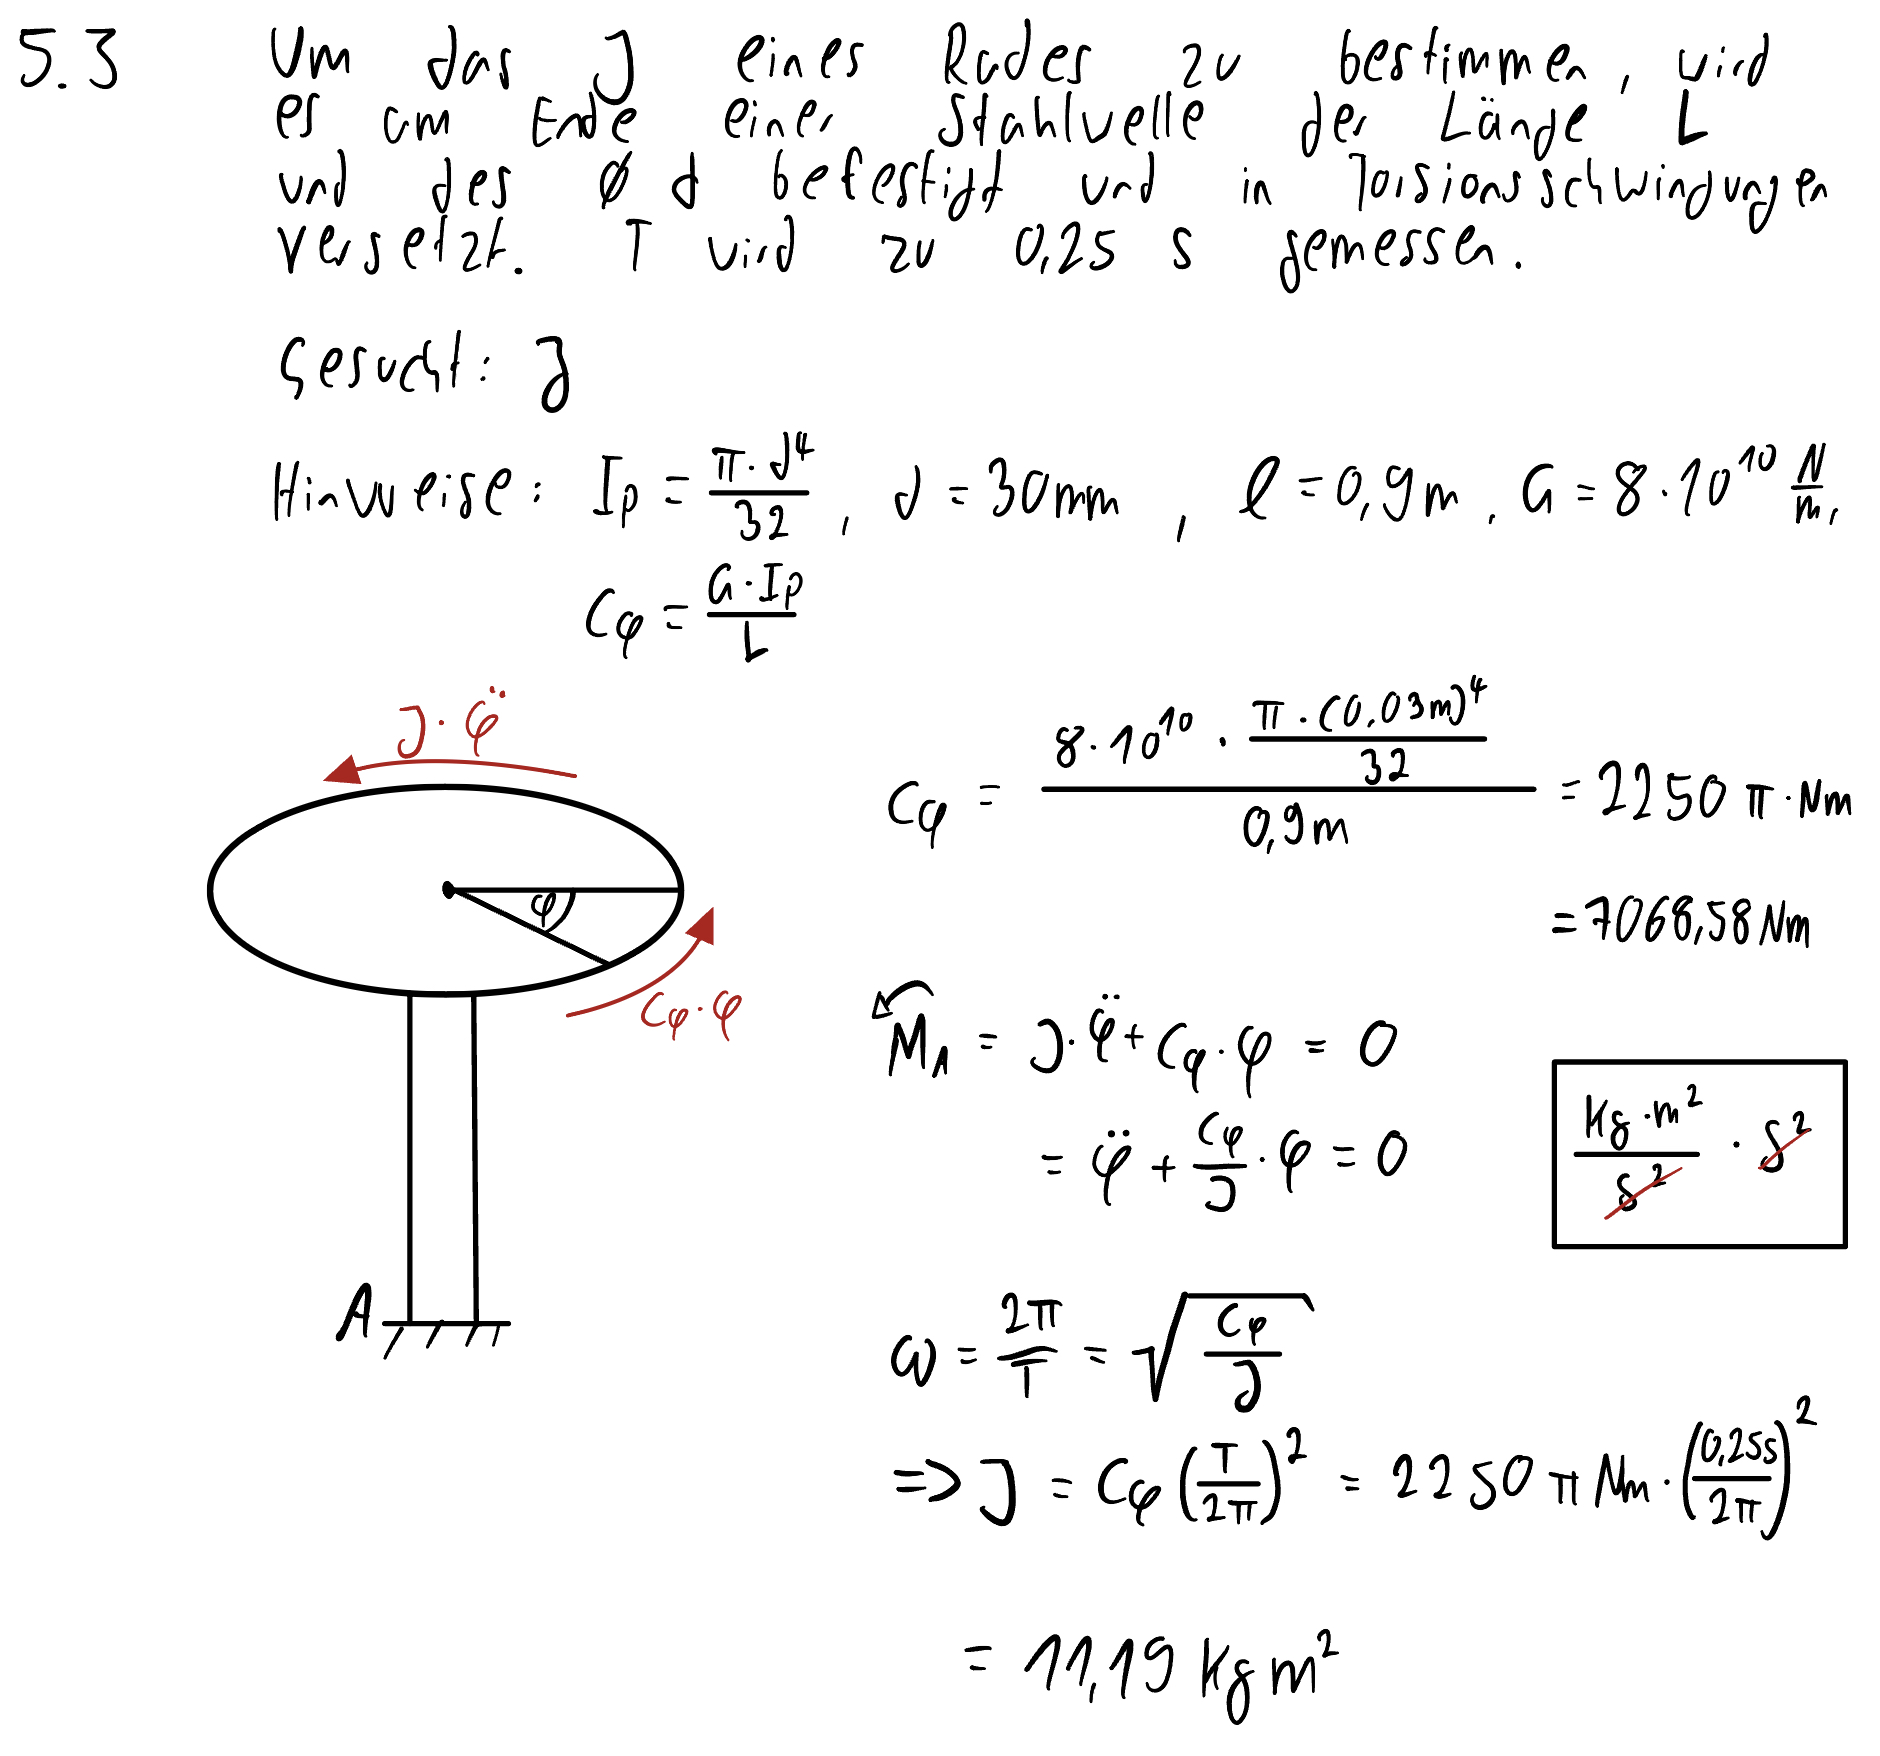 5.3 Um das J eines Rades zu bestimmen, wird
es am Ende einer Stahlwelle der Länge L
und des Ø d befestigt und in Torsionsschwingungen
versetzt. T wird zu 0,25 s gemessen.
Gesucht: J
Hinweise: Ip = π·d⁴/32, d = 30mm, l = 0,9m, G = 8·10¹⁰ N/m²
Cφ = G·Ip/L
J·φ̈
Cφ = (8·10¹⁰ · π·(0,03m)⁴/32)/0,9m = 2250 π·Nm
= 7068,58 Nm
φ
Cφ·φ
M_A = J·φ̈ + Cφ·φ = 0
= φ̈ + Cφ/J·φ = 0
kg·m²/s² · s²
A
ω = 2π/T = √(Cφ/J)
=> J = Cφ(T/2π)² = 2250 π Nm·(0,25s/2π)²
= 11,19 kg m²